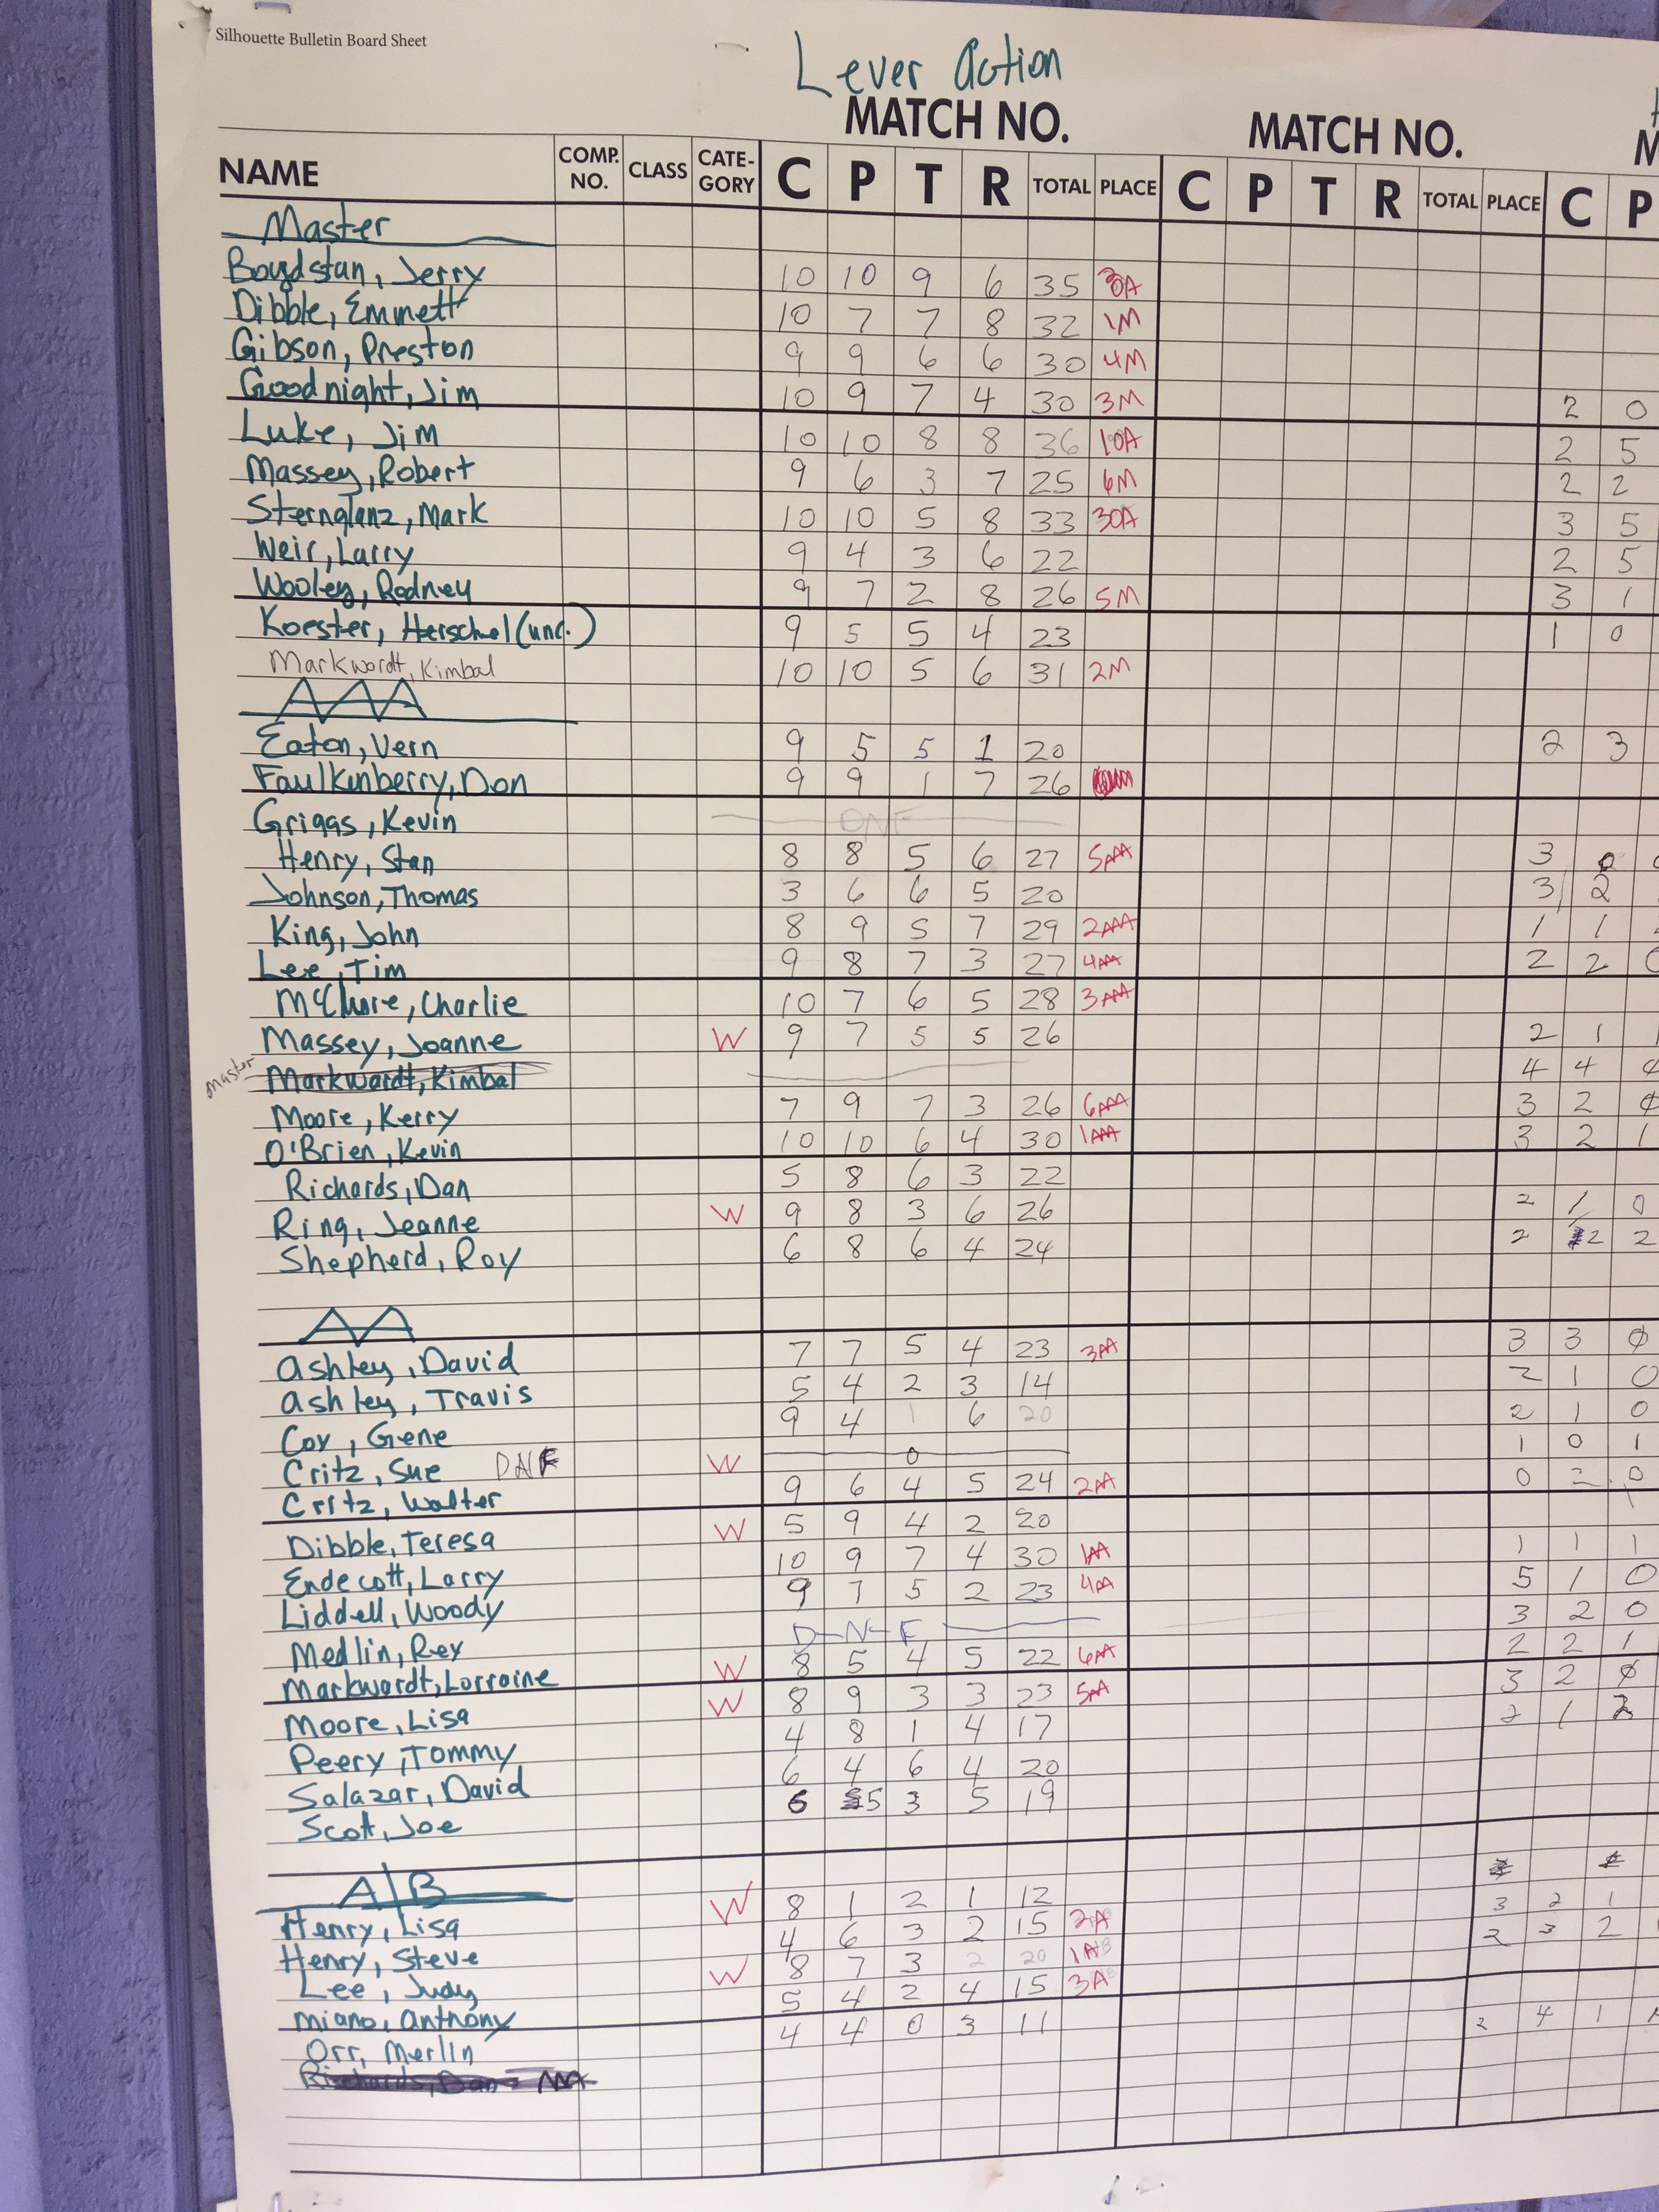 Silhouette Bulletin Board Sheet
Lever Action
MATCH NO. MATCH NO.
NAME COMP. NO. CLASS CATE-GORY C P T R TOTAL PLACE C P T R TOTAL PLACE C P
Master
Boydstan, Jerry 10 10 9 6 35
Dibble, Emmett 10 7 7 8 32 1M
Gibson, Preston 9 9 6 6 30 4M
Goodnight, Jim 10 9 7 4 30 3M 2 0
Luke, Jim 10 10 8 8 36 1OA 2 5
Massey, Robert 9 6 3 7 25 6M 2 2
Sternglanz, Mark 10 10 5 8 33 3OA 3 5
Weir, Larry 9 4 3 6 22 2 5
Wooley, Rodney 9 7 2 8 26 5M 3 1
Koester, Herschel (unc.) 9 5 5 4 23 1 0
Markwordt, Kimbal 10 10 5 6 31 2M
AAA
Eaton, Vern 9 5 5 1 20 2 3
Faulkenberry, Don 9 9 1 7 26
Griggs, Kevin DNF
Henry, Stan 8 8 5 6 27 5AAA 3 0
Johnson, Thomas 3 6 6 5 20 3 2
King, John 8 9 5 7 29 2AAA 1 1
Lee, Tim 9 8 7 3 27 4AAA 2 2 0
McClure, Charlie 10 7 6 5 28 3AAA
Massey, Joanne W 9 7 5 5 26 2 1 1
master Markwardt, Kimbal 4 4
Moore, Kerry 7 9 7 3 26 6AAA 3 2 0
O'Brien, Kevin 10 10 6 4 30 1AAA 3 2 1
Richards, Dan 5 8 6 3 22
Ring, Jeanne W 9 8 3 6 26 2 1 0
Shepherd, Roy 6 8 6 4 24 2 2 2
AA
Ashley, David 7 7 5 4 23 3AA 3 3 0
Ashley, Travis 5 4 2 3 14 2 1 0
Coy, Gene 9 4 1 6 20 2 1 0
Critz, Sue DNF W 0 1 0 1
Critz, Walter 9 6 4 5 24 2AA 0 2 0
Dibble, Teresa W 5 9 4 2 20
Endecott, Larry 10 9 7 4 30 1AA 1 1 1
Liddell, Woody 9 7 5 2 23 4AA 5 1 0
Medlin, Rey D-N-F 3 2 0
Markwordt, Lorraine W 8 5 4 5 22 6AA 2 2 1
Moore, Lisa W 8 9 3 3 23 5AA 3 2 0
Peery, Tommy 4 8 1 4 17 2 1 2
Salazar, David 6 4 6 4 20
Scott, Joe 6 5 3 5 19
A/B
Henry, Lisa W 8 1 2 1 12 3 2 1
Henry, Steve 4 6 3 2 15 2A 2 3 2
Lee, Judy W 8 7 3 2 20 1AB
Miano, Anthony 5 4 2 4 15 3AB
Orr, Merlin 4 4 0 3 11 2 4 1
Richards, Dan - AAA